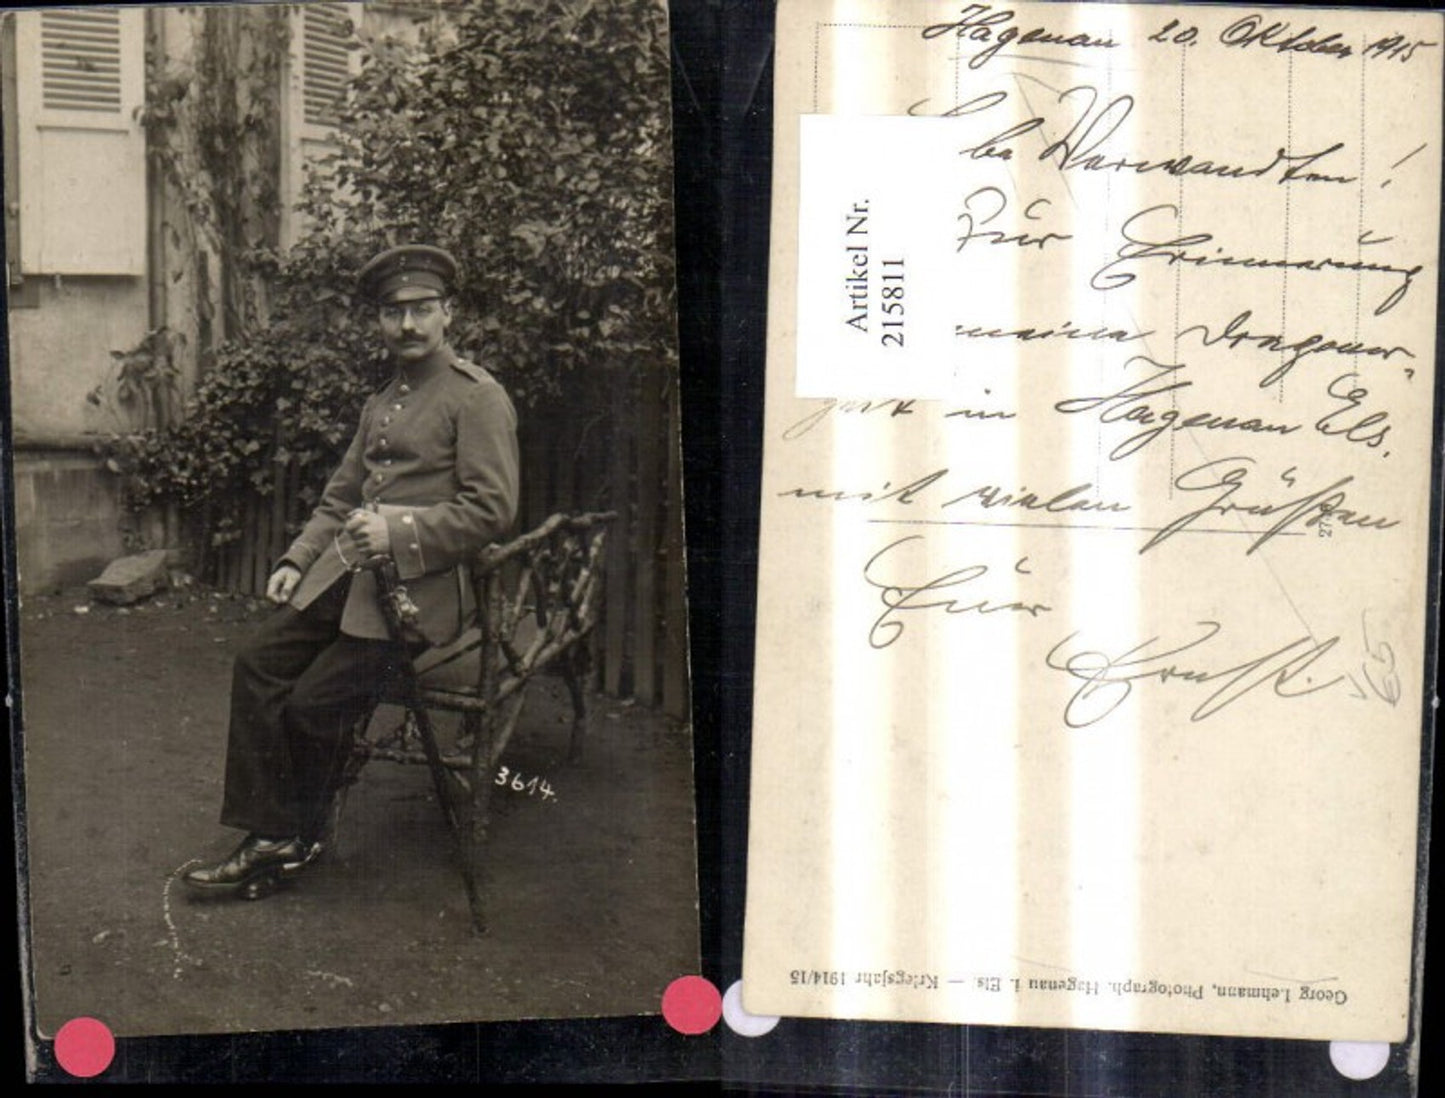 3614.
Hagenau 20. Oktober 1915
be Verwandten!
Zur Erinnerung
meine Dragoner-
Zeit in Hagenau Els.
mit vielen Grüßen
Euer
Ernst.
Artikel Nr.
215811
65
Georg Lehmann, Photograph. Hagenau i. Els. — Kriegsjahr 1914/15